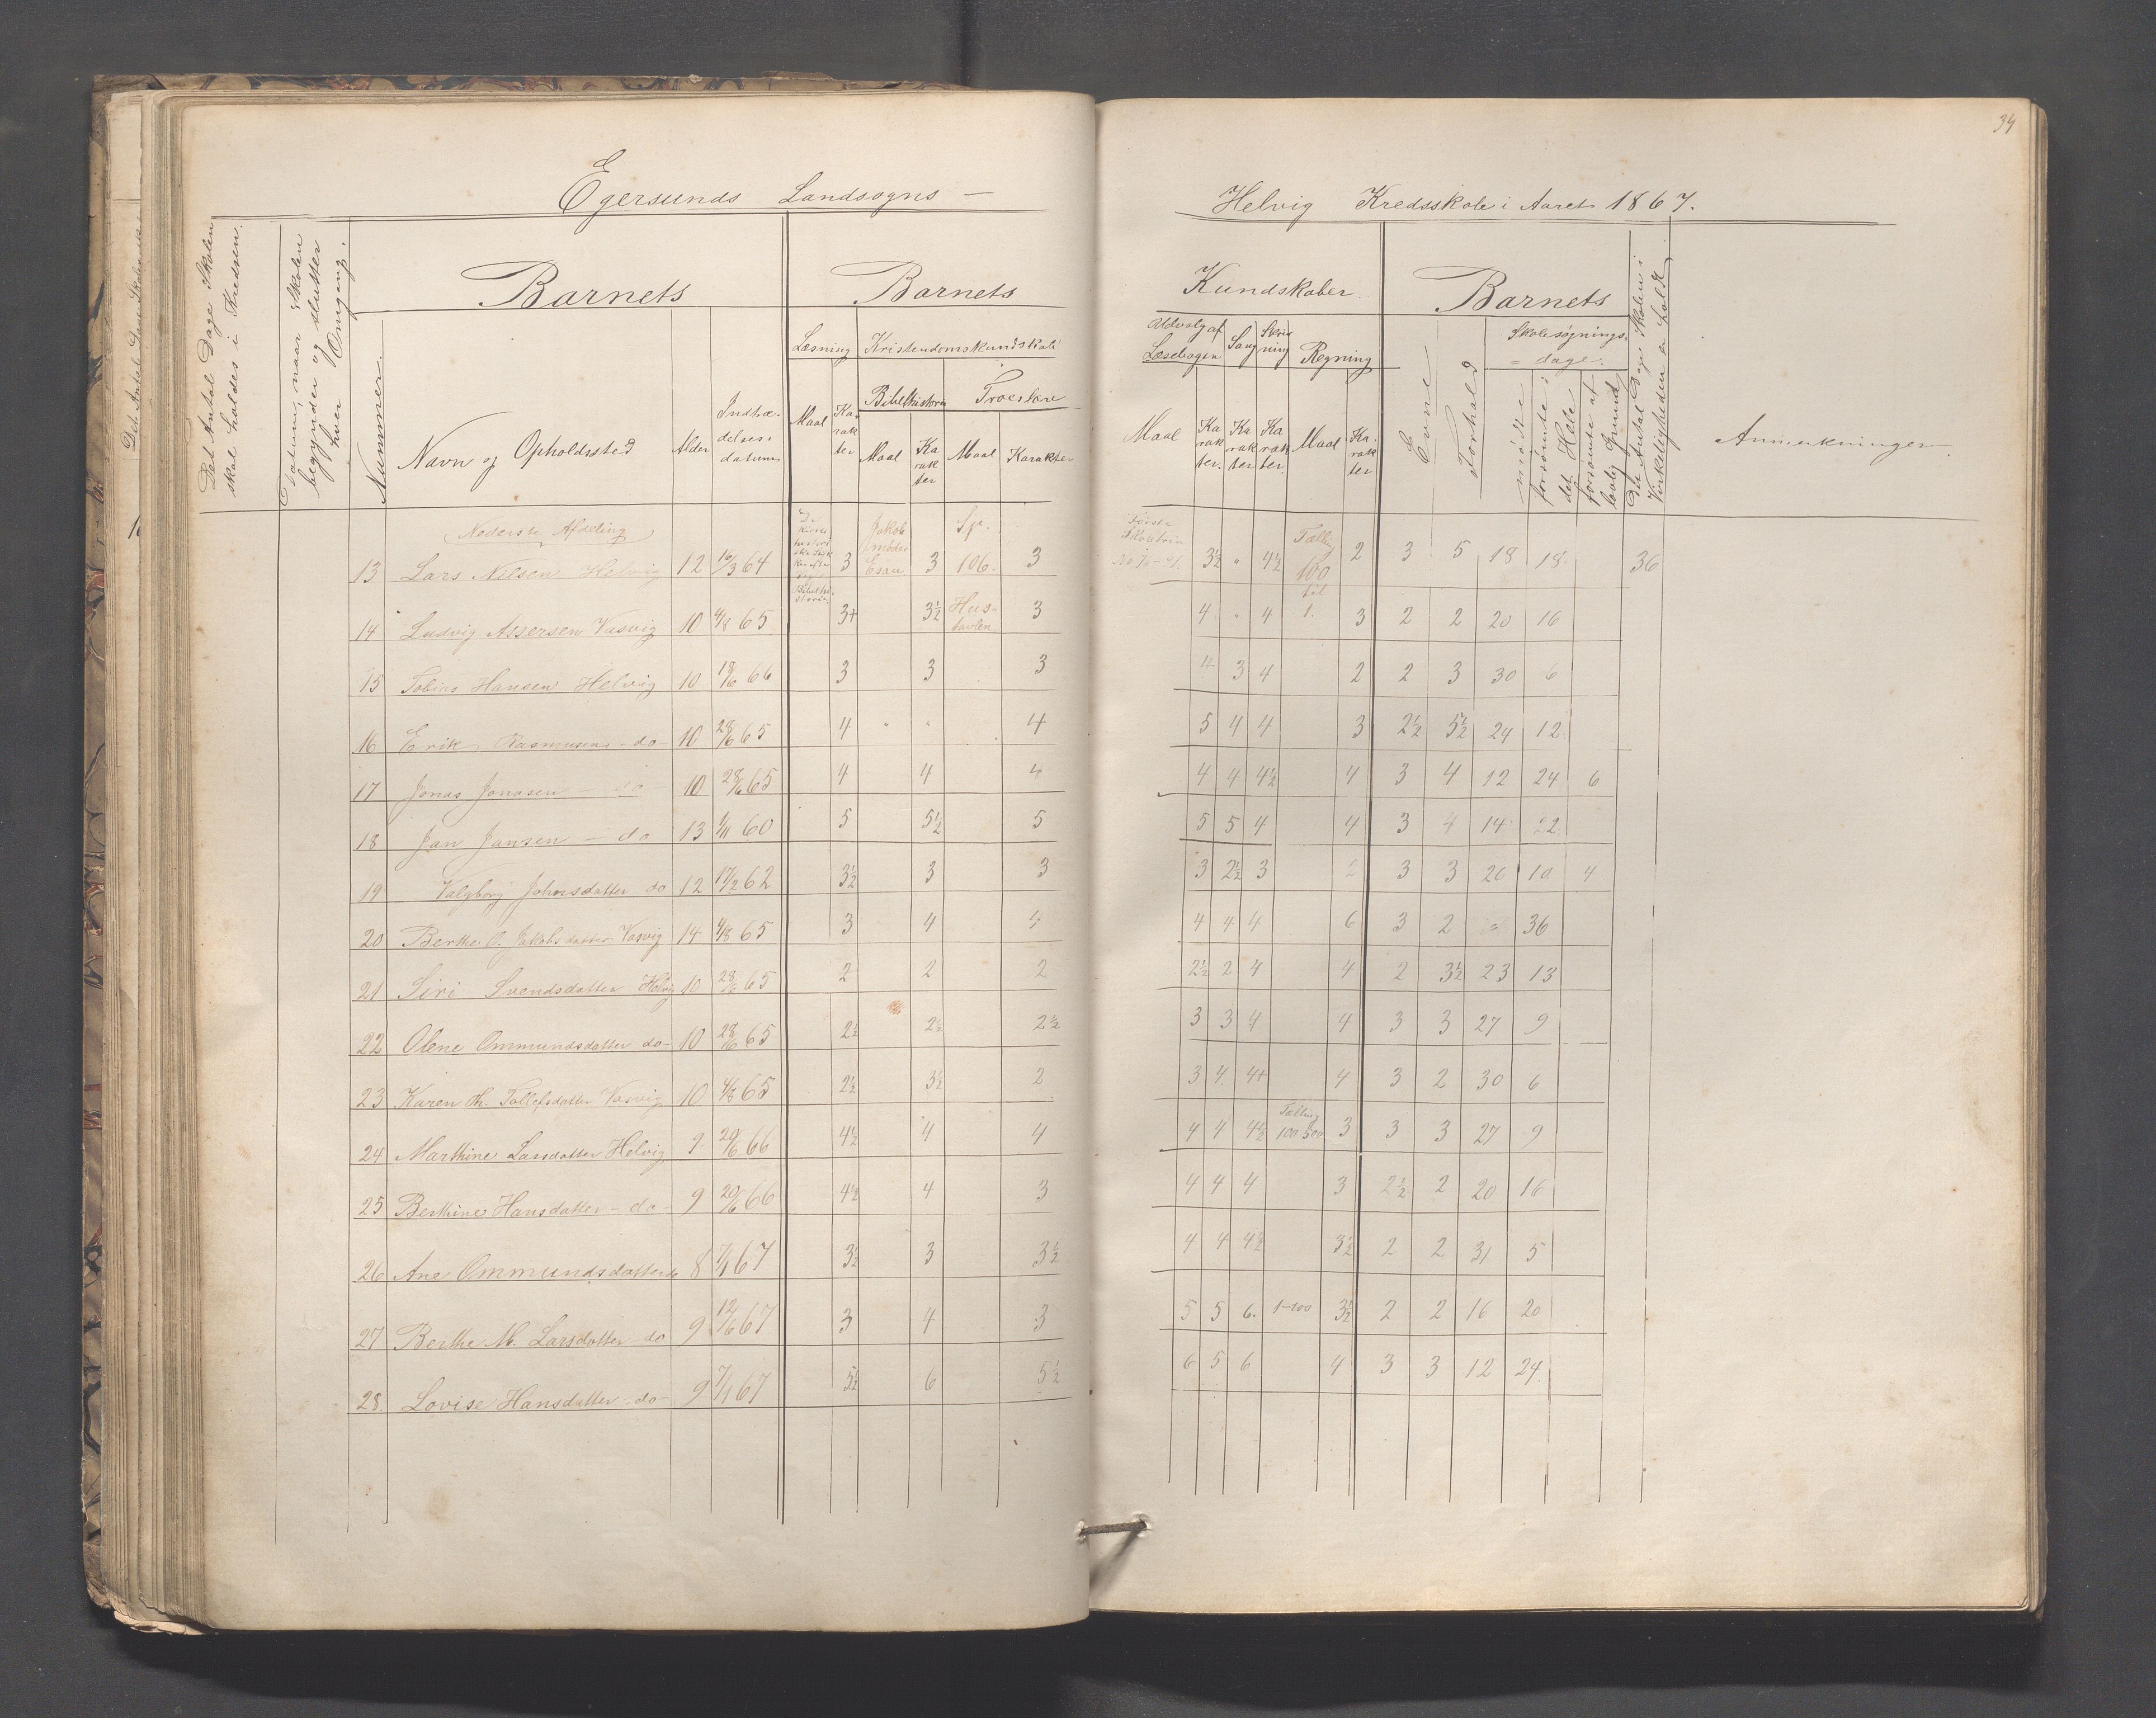 34
Egersunds Landsogns —
Helvig Kredsskole i Aaret 1867.
Det Antal Dage Skolen skal holdes i Kredsen.
Datum, naar Skolen begynder og slutter hver Omgang.
Nummer
Barnets
Navn og Opholdssted
Alder
Indtrædelsesdatum
Barnets
Læsning
Maal
Karakter
Kristendomskundskab
Bibelhistorie
Maal
Karakter
Troeslære
Maal
Karakter
Kundskaber
Udvalg af Læsebogen
Maal
Karakter
Sang
Karakter
Skrivning
Karakter
Regning
Maal
Karakter
Barnets
Evne
Forhold
Skolesøgningsdage
mødte
forsømte i det Hele
forsømte af lovlig Grund
Det Antal Dage Skolen i Virkeligheden er holdt
Anmerkninger
Nederste Afdeling
13 Lars Nilsen Helvig 12 16/3 64 3 Jakob møder Esau 3 Sp. 106. 3 3½ " 4½ Tælling 100 til 1. 2 3 5 18 18 36
14 Ludvig Assersen Vasvig 10 4/8 65 3+ 3½ Hustavlen 3 4 " 4 3 2 2 20 16
15 Tobias Hansen Helvig 10 18/6 66 3 3 3 4 3 4 2 2 3 30 6
16 Erik Rasmusens - do - 10 28/6 65 4 " " 4 5 4 4 3 2½ 5½ 24 12
17 Jonas Jonasen - do 10 28/6 65 4 4 4 4 4 4½ 4 3 4 12 24 6
18 Jan Jansen - do 13 1/11 60 5 5½ 5 5 5 4 4 3 4 14 22
19 Valgborg Johnsdatter do 12 17/2 62 3½ 3 3 3 2½ 3 3 3 20 10 4
20 Berthe O. Jakobsdatter Vasvig 14 4/8 65 3 4 4 4 4 4 6 3 2 " 36
21 Siri Svendsdatter Helvig 10 28/6 65 2 2 2 2½ 2 4 4 2 3½ 23 13
22 Olene Ommundsdatter do- 10 28/6 65 2½ 2½ 2½ 3 3 4 4 3 3 27 9
23 Karen Th. Tollefsdatter Vasvig 10 4/8 65 2½ 3½ 2 3 4 4+ 4 3 2 30 6
24 Marthine Larsdatter Helvig 9 20/6 66 4½ 4 4 4 4 4½ Tælling 100 500 3 3 3 27 9
25 Berthine Hansdatter - do - 9 20/6 66 4½ 4 3 4 4 4 3 2½ 2 20 16
26 Ane Ommundsdatter do 8 7/1 67 3½ 3 3½ 4 4 4½ 3½ 2 2 31 5
27 Berthe M. Larsdatter do 9 12/6 67 3 4 3 5 5 6. 1-100 3½ 2 2 16 20
28. Lovise Hansdatter - do - 9 7/1 67 5½ 6 5½ 6 5 6 4 3 3 12 24